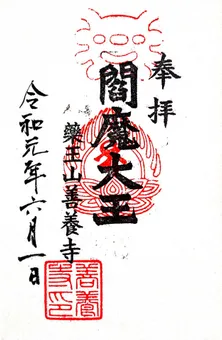 奉拝
閻魔大王
藥王山善養寺
令和元年六月一日
善養
寺印